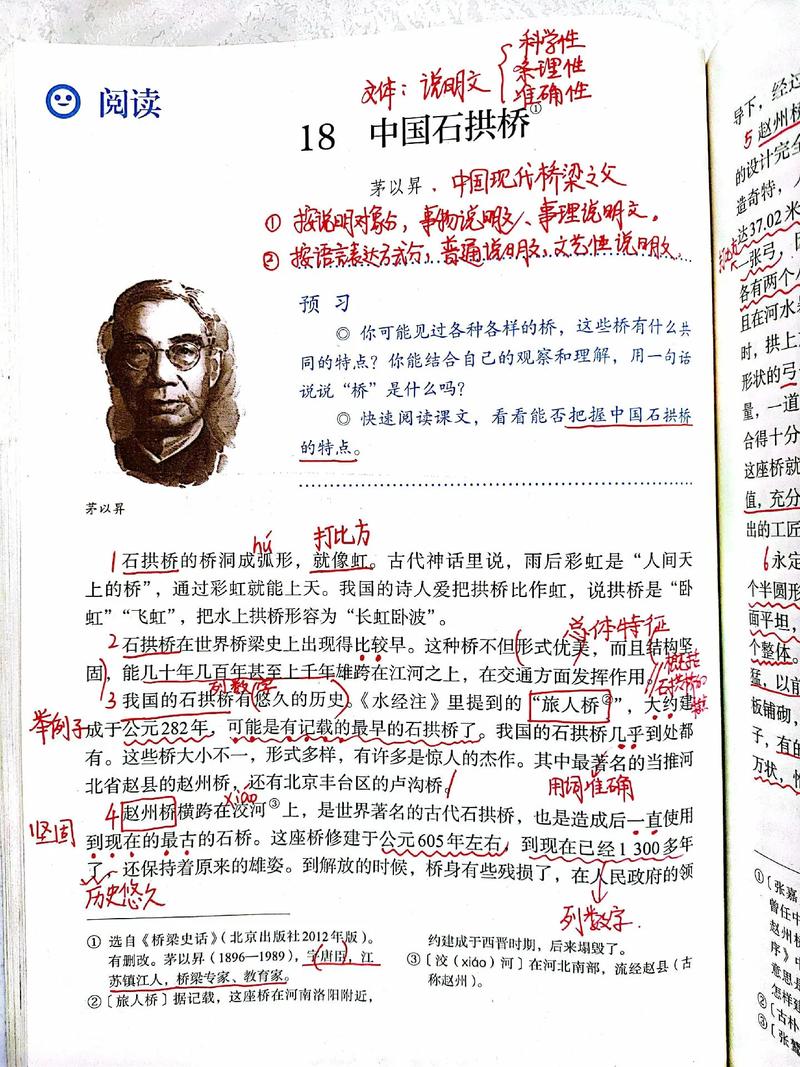 阅读
文体：说明文
科学性
条理性
准确性
18 中国石拱桥①
茅以昇、中国现代桥梁之父
① 按说明对象分，事物说明文、事理说明文。
② 按语言表达方式分，普通说明文，文艺性说明文。
预 习
◎ 你可能见过各种各样的桥，这些桥有什么共
同的特点？你能结合自己的观察和理解，用一句话
说说“桥”是什么吗？
◎ 快速阅读课文，看看能否把握中国石拱桥
的特点。
茅以昇
hú 打比方
1 石拱桥的桥洞成弧形，就像虹。古代神话里说，雨后彩虹是“人间天
上的桥”，通过彩虹就能上天。我国的诗人爱把拱桥比作虹，说拱桥是“卧
虹”“飞虹”，把水上拱桥形容为“长虹卧波”。
总体特征
2 石拱桥在世界桥梁史上出现得比较早。这种桥不但形式优美，而且结构坚
固，能几十年几百年甚至上千年雄跨在江河之上，在交通方面发挥作用。
列数字
3 我国的石拱桥有悠久的历史。《水经注》里提到的“旅人桥②”，大约建
举例子
成于公元282年，可能是有记载的最早的石拱桥了。我国的石拱桥几乎到处都
有。这些桥大小不一，形式多样，有许多是惊人的杰作。其中最著名的当推河
北省赵县的赵州桥，还有北京丰台区的卢沟桥。
xiáo 用词准确
4 赵州桥横跨在洨河③上，是世界著名的古代石拱桥，也是造成后一直使用
坚固
到现在的最古的石桥。这座桥修建于公元605年左右，到现在已经1 300多年
了，还保持着原来的雄姿。到解放的时候，桥身有些残损了，在人民政府的领
历史悠久
列数字
① 选自《桥梁史话》（北京出版社2012年版）。
有删改。茅以昇（1896—1989），字唐臣，江
苏镇江人，桥梁专家、教育家。
②〔旅人桥〕据记载，这座桥在河南洛阳附近，
约建成于西晋时期，后来塌毁了。
③〔洨（xiáo）河〕在河北南部，流经赵县（古
称赵州）。
导下，经过
5 赵州桥
的设计完全
造奇特，
达37.02米
一张弓，
各有两个
且在河水
时，拱上
形状的弓
量，一道
合得十分
这座桥就
值，充分
出的工匠
6 永定
个半圆形
面平坦，
个整体。
猛，以前
板铺砌，
子，有的
万状，
①〔张嘉
曾任中
赵州桥
序》中
意思是
怎样建
②〔古朴
③〔张鷟